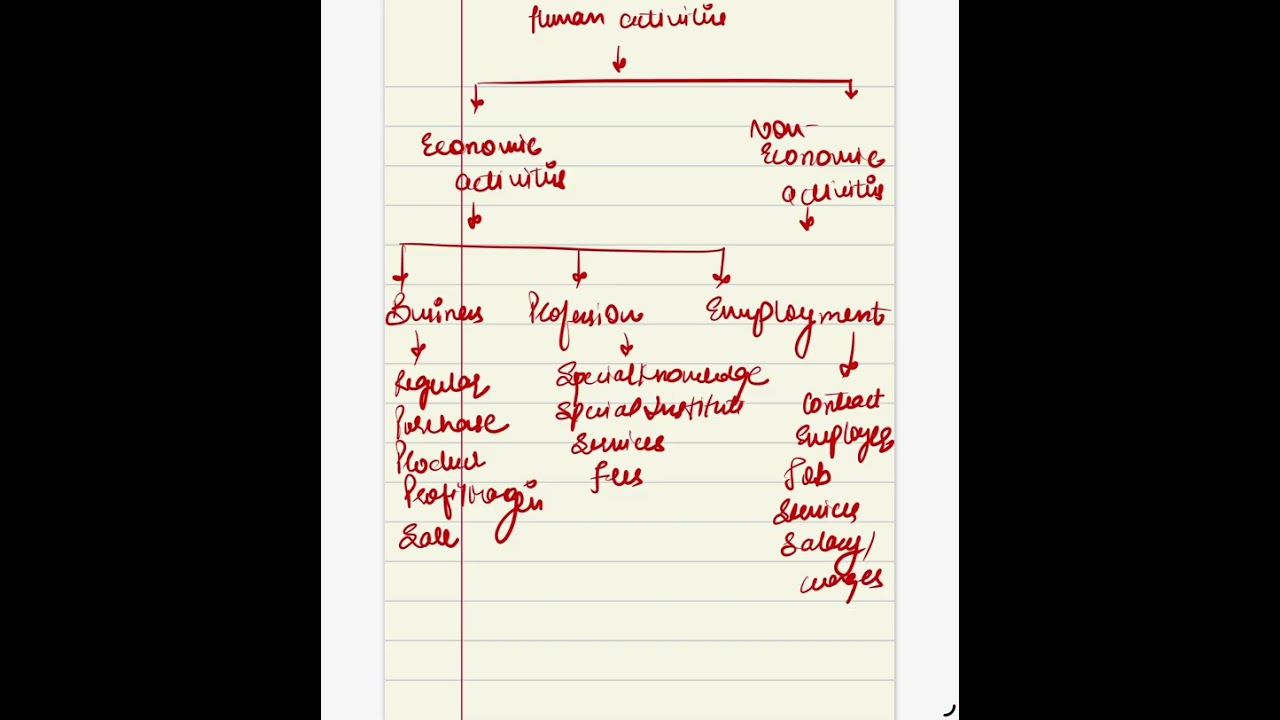 Human activities
Economic
activities
Non-
Economic
activities
Business
Profession
Employment
Regular
Purchase
Product
Profit/Margin
Sale
Special Knowledge
Special Institute
Services
Fees
Contract
Employee
Job
Services
Salary/
wages